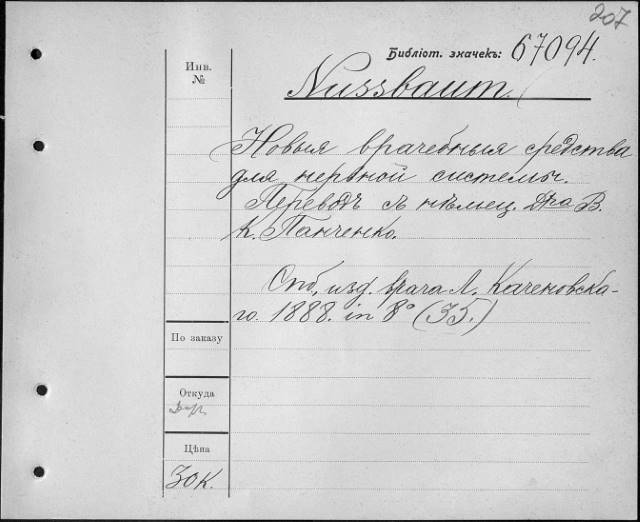 207
Библіот. значекъ: 67094.
Инв.
№
Nussbaum.
Новыя врачебныя средства
для нервной системы.
Переводъ съ нѣмец. Дра В.
К. Панченко.
Спб, изд. врача Л. Каченовска-
го. 1888. in 8° (35.)
По заказу
Откуда
Цѣна
30к.